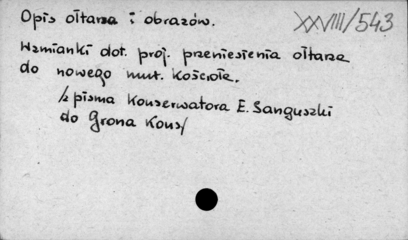 Opis ołtarza i obrazów.
XXVIII/543
Wzmianki dot. proj. przeniesienia ołtarza
do nowego mur. kościoła.
/z pisma Konserwatora E. Sanguszki
do Grona Kons/